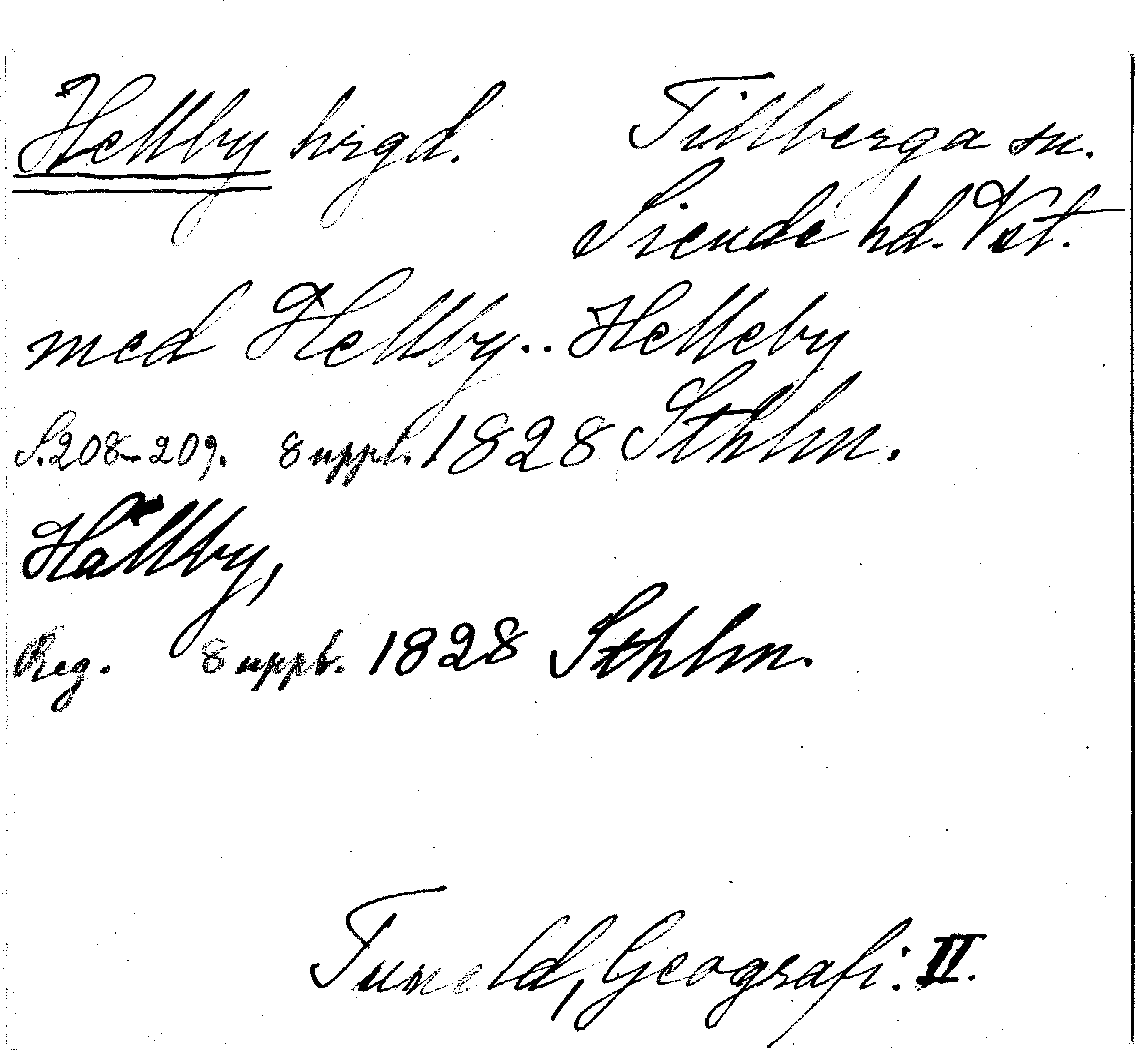 Hellby hrgd. Tillberga sn.
Siende hd. Vst.
med Hellby.. Helleby
S. 208-209. 8 uppl. 1828 Sthlm.
Hällby,
Reg. 8 uppl. 1828 Sthlm.
Tuneld, Geografi: II.